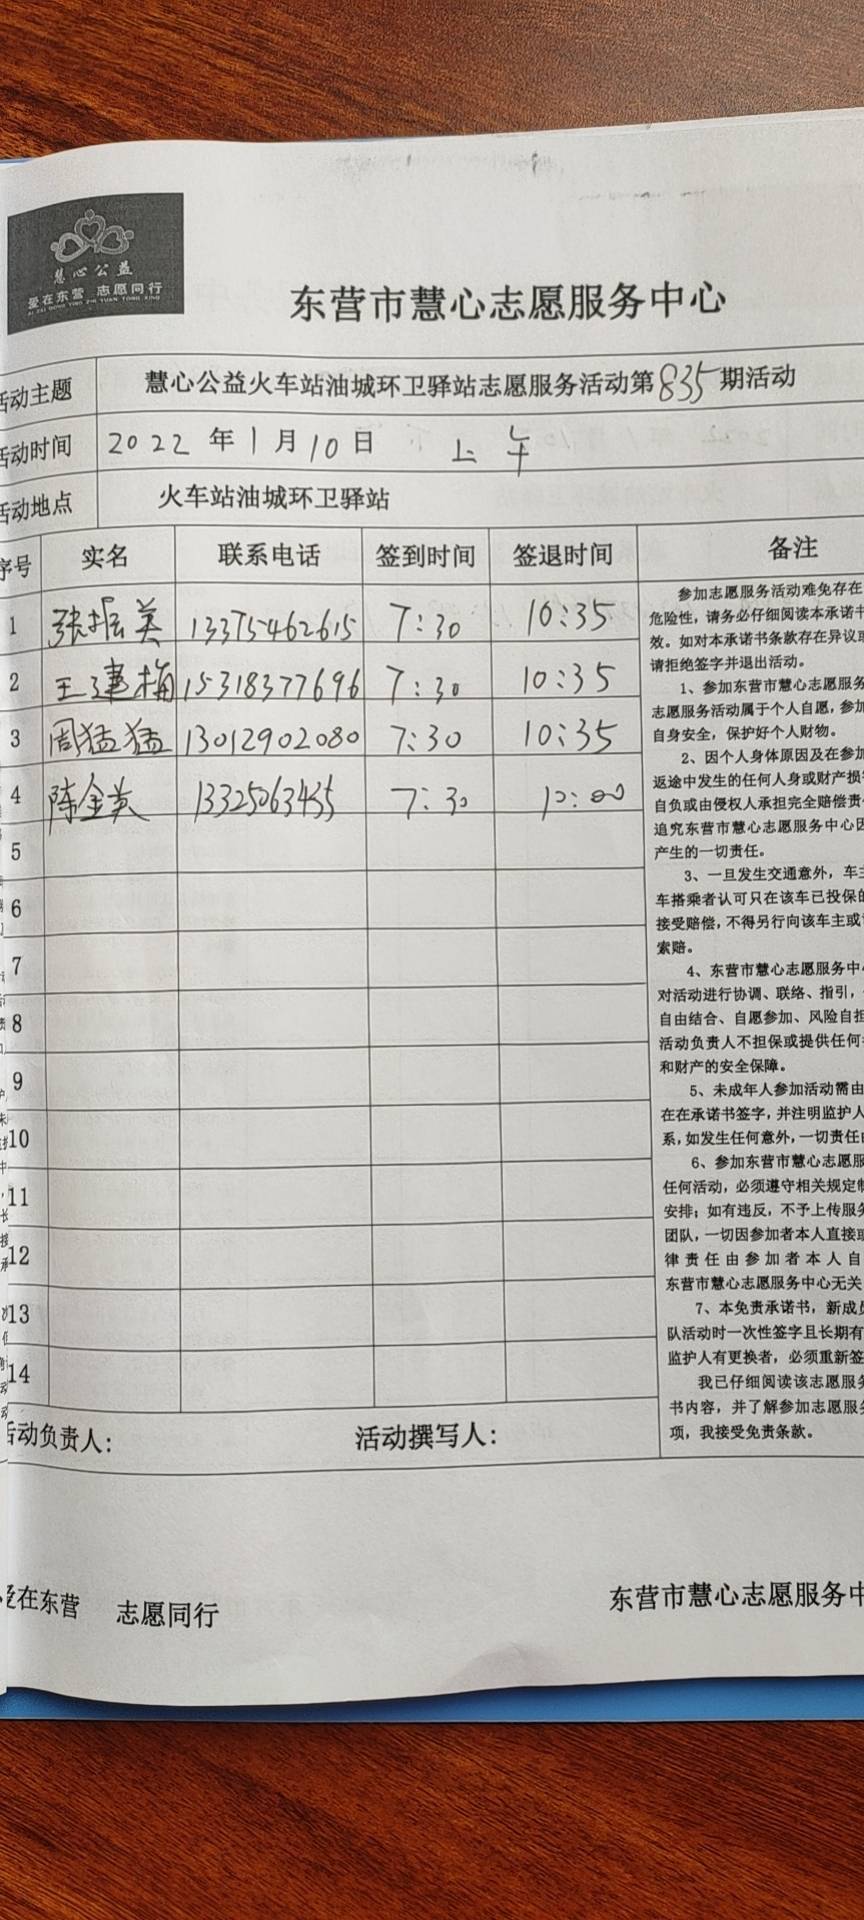 慧心公益
爱在东营 志愿同行
AI ZAI DONG YING ZHI YUAN TONG XING
东营市慧心志愿服务中心
活动主题 慧心公益火车站油城环卫驿站志愿服务活动第835期活动
活动时间 2022年1月10日 上午
活动地点 火车站油城环卫驿站
序号 实名 联系电话 签到时间 签退时间 备注
1 张振英 13375462615 7:30 10:35
2 王建梅 15318377696 7:30 10:35
3 周猛猛 13012902080 7:30 10:35
4 陈金英 13325063435 7:30 10:00
5
6
7
8
9
10
11
12
13
14
参加志愿服务活动难免存在
危险性，请务必仔细阅读本承诺书
效。如对本承诺书条款存在异议或
请拒绝签字并退出活动。
1、参加东营市慧心志愿服务
志愿服务活动属于个人自愿，参加
自身安全，保护好个人财物。
2、因个人身体原因及在参加
返途中发生的任何人身或财产损
自负或由侵权人承担完全赔偿责
追究东营市慧心志愿服务中心因
产生的一切责任。
3、一旦发生交通意外，车主
车搭乘者认可只在该车已投保的
接受赔偿，不得另行向该车主或
索赔。
4、东营市慧心志愿服务中
对活动进行协调、联络、指引，
自由结合、自愿参加、风险自担
活动负责人不担保或提供任何
和财产的安全保障。
5、未成年人参加活动需由
在在承诺书签字，并注明监护人
系，如发生任何意外，一切责任
6、参加东营市慧心志愿服
任何活动，必须遵守相关规定制
安排；如有违反，不予上传服务
团队，一切因参加者本人直接或
律责任由参加者本人自
东营市慧心志愿服务中心无关
7、本免责承诺书，新成员
队活动时一次性签字且长期有
监护人有更换者，必须重新签
我已仔细阅读该志愿服务
书内容，并了解参加志愿服务
项，我接受免责条款。
活动负责人： 活动撰写人：
爱在东营 志愿同行 东营市慧心志愿服务中